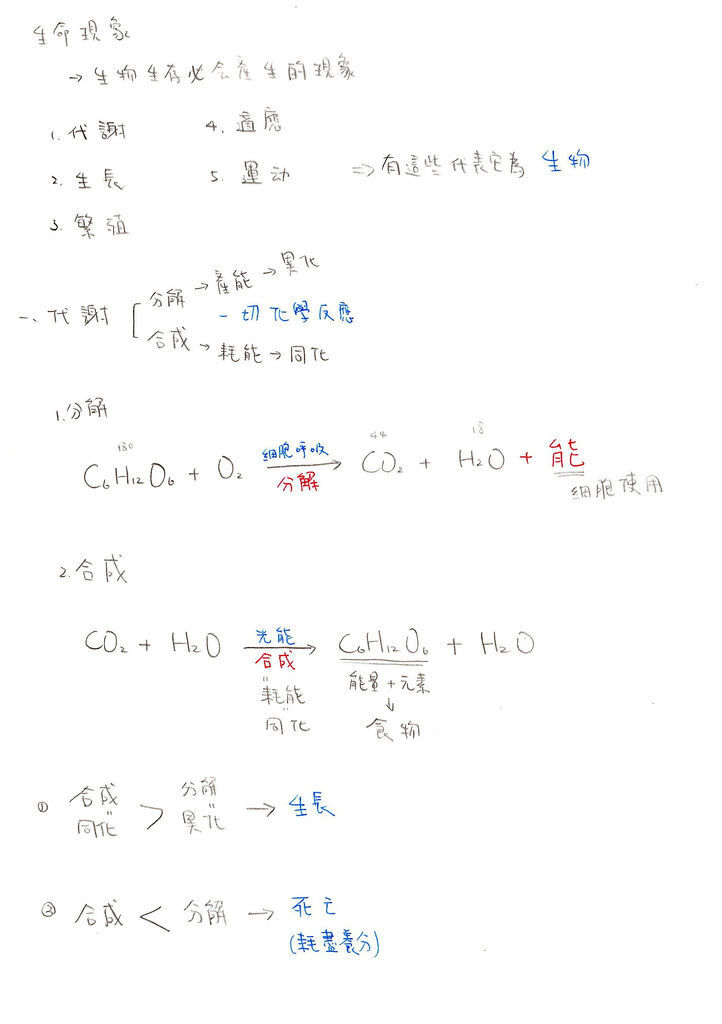 生命現象
→ 生物生存必会產生的現象
1. 代謝 4. 適應
2. 生長 5. 運动 ⇒ 有這些代表它為 生物
3. 繁殖
一、代謝 [ 分解 → 產能 → 異化
一切化學反應
合成 → 耗能 → 同化
1. 分解
180 44 18
C₆H₁₂O₆ + O₂ 細胞呼吸 分解 → CO₂ + H₂O + 能
細胞使用
2. 合成
CO₂ + H₂O 光能 合成 → C₆H₁₂O₆ + H₂O
" 耗能 能量 + 元素
" 同化 ↓ 食物
① 合成 " 同化 > 分解 " 異化 → 生長
② 合成 < 分解 → 死亡
(耗盡養分)